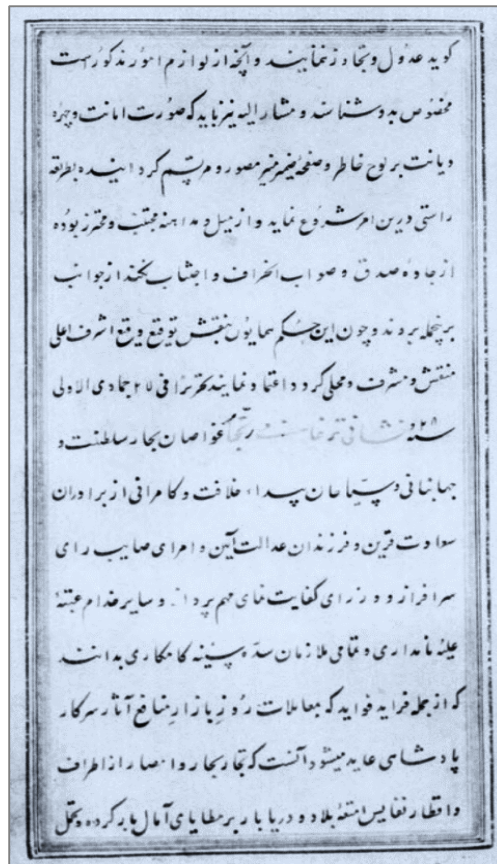 گوید عدول و تجاوز ننمایند و آنچه از لوازم امور مذکورست
مخصوص بدو شناسند و مشار الیه نیز باید که صورت امانت و چهره
دیانت بر لوح خاطر و صفحهٔ ضمیر منیر مصور و مرتسم گردانیده بطریقه
راستی درین امر شروع نماید و از میل و مداهنه مجتنب و محترز بوده
از جادهٔ صدق و صواب انحراف و اجتناب نکند از جوانب
برینجمله بروند و چون این حکم همایون بنقش توقیع وقیع اشرف اعلی
منقش و مشرف و محلی گردد اعتماد نمایند تحریرا فی ۲۷ جمادی الاولی
غواصان بحار سلطنت و
جهانبانی و سیاحان بیداء خلافت و کامرانی از برادران
سعادت قرین و فرزندان عدالت آیین و امرای صایب رای
سرافراز و وزرای کفایت نمای مهم پرداز و سایر خدام عتبهٔ
علیهٔ نامداری و تمامی ملازمان سدهٔ سنیه کامکاری بدانند
که از جمله فراید فواید که معاملات روز بازار منافع آثار سرکار
پادشاهی عاید میشود آنست که تجار بحار و امصار از اطراف
و اقطار نفایس امتعهٔ بلاد و دریا بار بر مطایای آمال بار کرده و تحمل